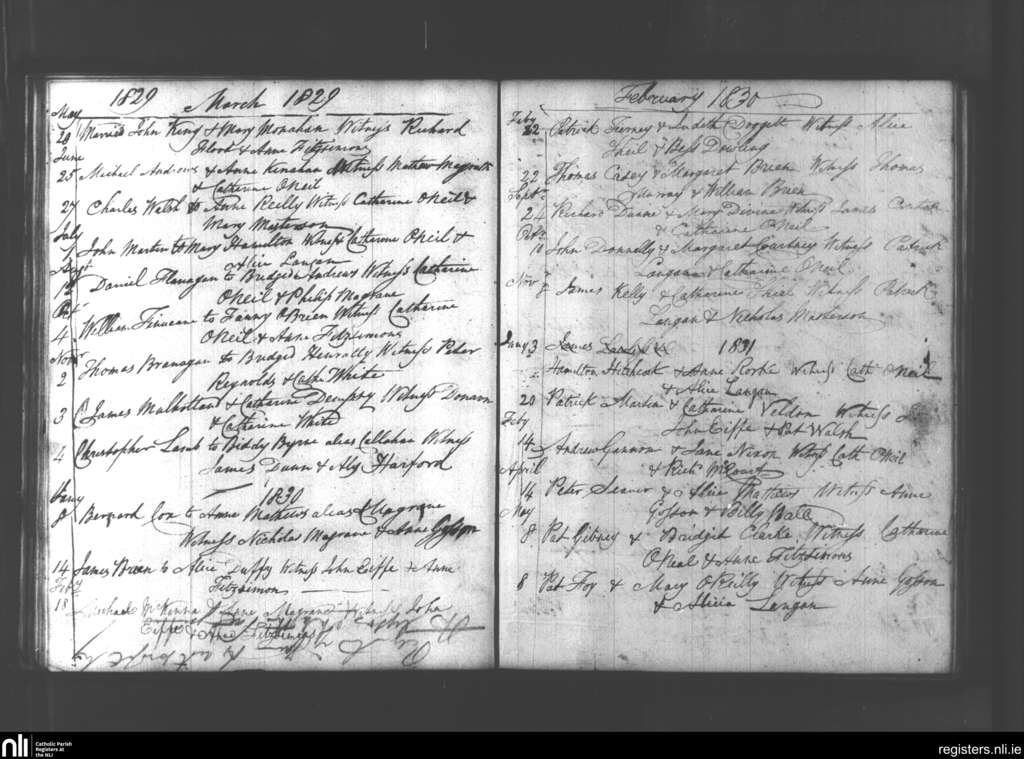 1829 March 1829
May
28 Married John King & Mary Monahan Witness Richard
Flood & Anne Fitzsimons
June
25 Michael Andrews & Anne Kinahan Witness Mathew Magrath
& Catherine ONeil
27 Charles Walsh to Anne Reilly Witness Catherine ONeil &
Mary Masterson
July
1 John Martin to Mary Hamilton Witness Catherine ONeil &
Alice Langan
Daniel Flanagan to Bridged Andrews Witness Catherine
ONeil & Philip Magrane
Oct
4 William Finucane to Fanny OBrien Witness Catherine
ONeil & Anne Fitzsimons
Novr
2 Thomas Branagan to Bridged Witness Peter
Reynolds & Cathe White
3 James Mulholland & Catherine Dempsy Witness
& Catherine White
4 Christopher Lamb to Biddy Byrne alias Callahan Witness
James Dunn & Aly Harford
1830
Jany
8 Bernard Cox to Anne Mathews alias
Witness Nicholas Magrane & Anne Gybson
14 James Brien to Alice Duffy Witness John Eiffe & Anne
Fitzsimon
Feby
18 Michael McKenna & Jane Magrane Witness John
Eiffe & Anne Fitzsimons
February 1830
Feby
22 Patrick Tierney & Judith Doggett Witness Alice
Shiel & Bess Dowling
22 Thomas Casey & Margaret Brien Witness Thomas
& William Brien
Septr
24 Richard Dunne & Mary Divine Witness James
& Catharine ONeil
Octr
10 John Donnelly & Margaret Courtney Witness Patrick
Langan & Catharine ONeil
Novr
7 James Kelly & Catharine Shiel Witness Patrick
Langan & Nicholas Masterson
Jany 3 James 1831
Hamilton Hitchcock & Anne Rorke Witness Cath ONeil
& Alice Langan
20 Patrick Martin & Catharine Veldon Witness
John Eiffe & Pat Walsh
Feby
14 Andrew Gannon & Jane Nixon Witness Cath ONeil
& Richd McCourt
April
14 Peter Seaver & Alice Mathews Witness Anne
Gybson & Billy Bale
May
8 Pat Gibney & Bridgit Clarke Witness Catharine
ONeal & Anne Fitzsimons
8 Pat Foy & Mary OReilly Witness Anne Gybson
& Alicia Langan
nli Catholic Parish
Registers at
the NLI
registers.nli.ie